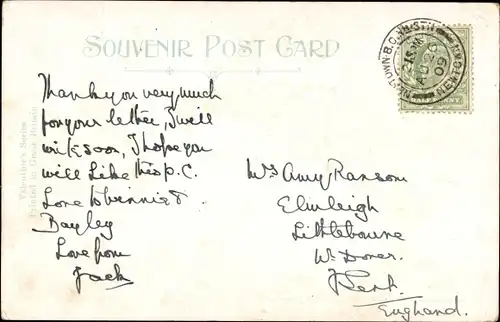 SOUVENIR POST CARD
Thank you very much
for your letter, I will
write soon, I hope you
will like this p.c.
Love to Winnie &
Bayley
Love from
Jack
Mrs Amy Ransom
Elmleigh
Littlebourne
Nr Dover.
Kent.
England.
Valentine's Series
Printed in Great Britain
AU 20
09